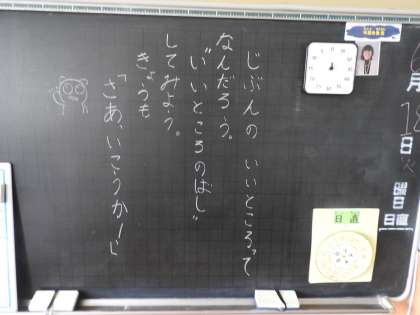 じぶんの いいところって
なんだろう。
"いいところのばし"
してみよう。
きょうも
「さあ、いこうかー」
月
18
日
火
曜日
日直
日直